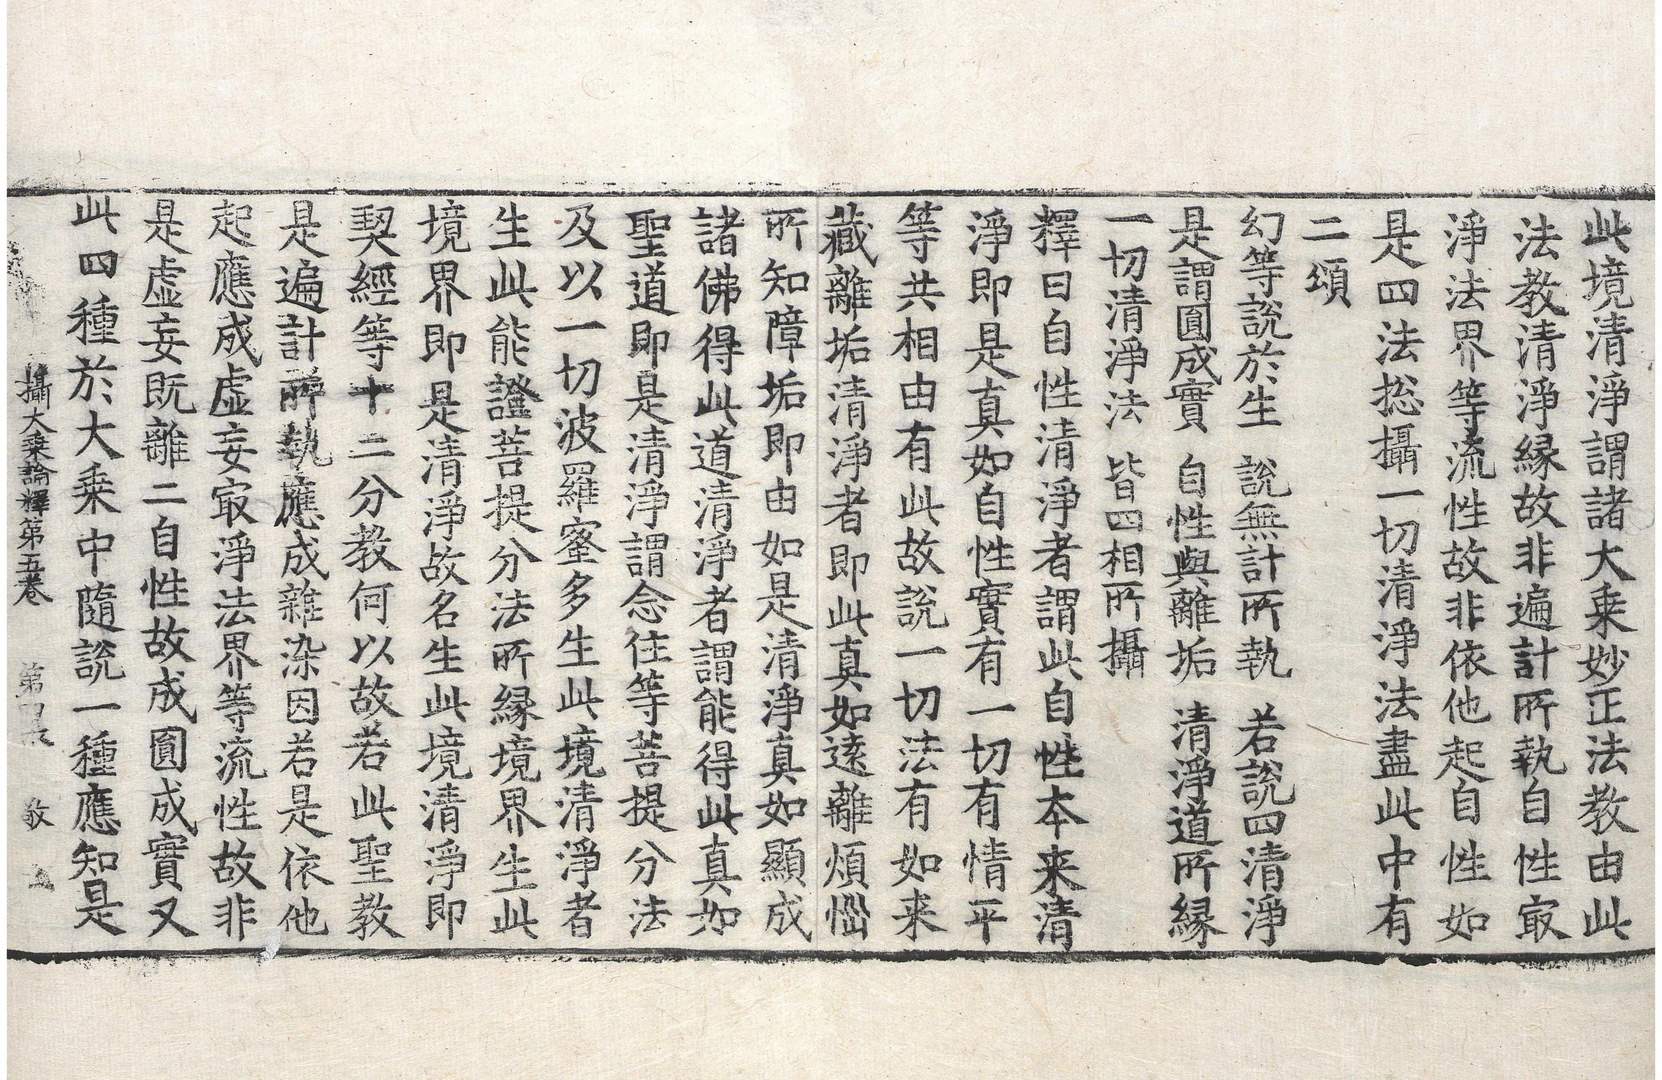 此境清淨謂諸大乗妙正法教由此
法教清淨縁故非遍計所執自性㝡
淨法界等流性故非依他起自性如
是四法捴攝一切清淨法盡此中有
二頌
幻等說於生 說無計所執 若說四清淨
是謂圎成實 自性與離垢 清淨道所縁
一切清淨法 皆四相所攝
釋曰自性清淨者謂此自性本来清
淨即是真如自性實有一切有情平
等共相由有此故說一切法有如来
藏離垢清淨者即此真如逺離煩惱
所知障垢即由如是清淨真如顯成
諸佛得此道清淨者謂能得此真如
聖道即是清淨謂念住等菩提分法
及以一切波羅蜜多生此境清淨者
生此能證菩提分法所縁境界生此
境界即是清淨故名生此境清淨即
契經等十二分教何以故若此聖教
是遍計所執應成雜染因若是依他
起應成虛妄㝡淨法界等流性故非
是虛妄既離二自性故成圎成實又
此四種於大乗中隨說一種應知是
攝大乗論釋第五卷 第四 敬